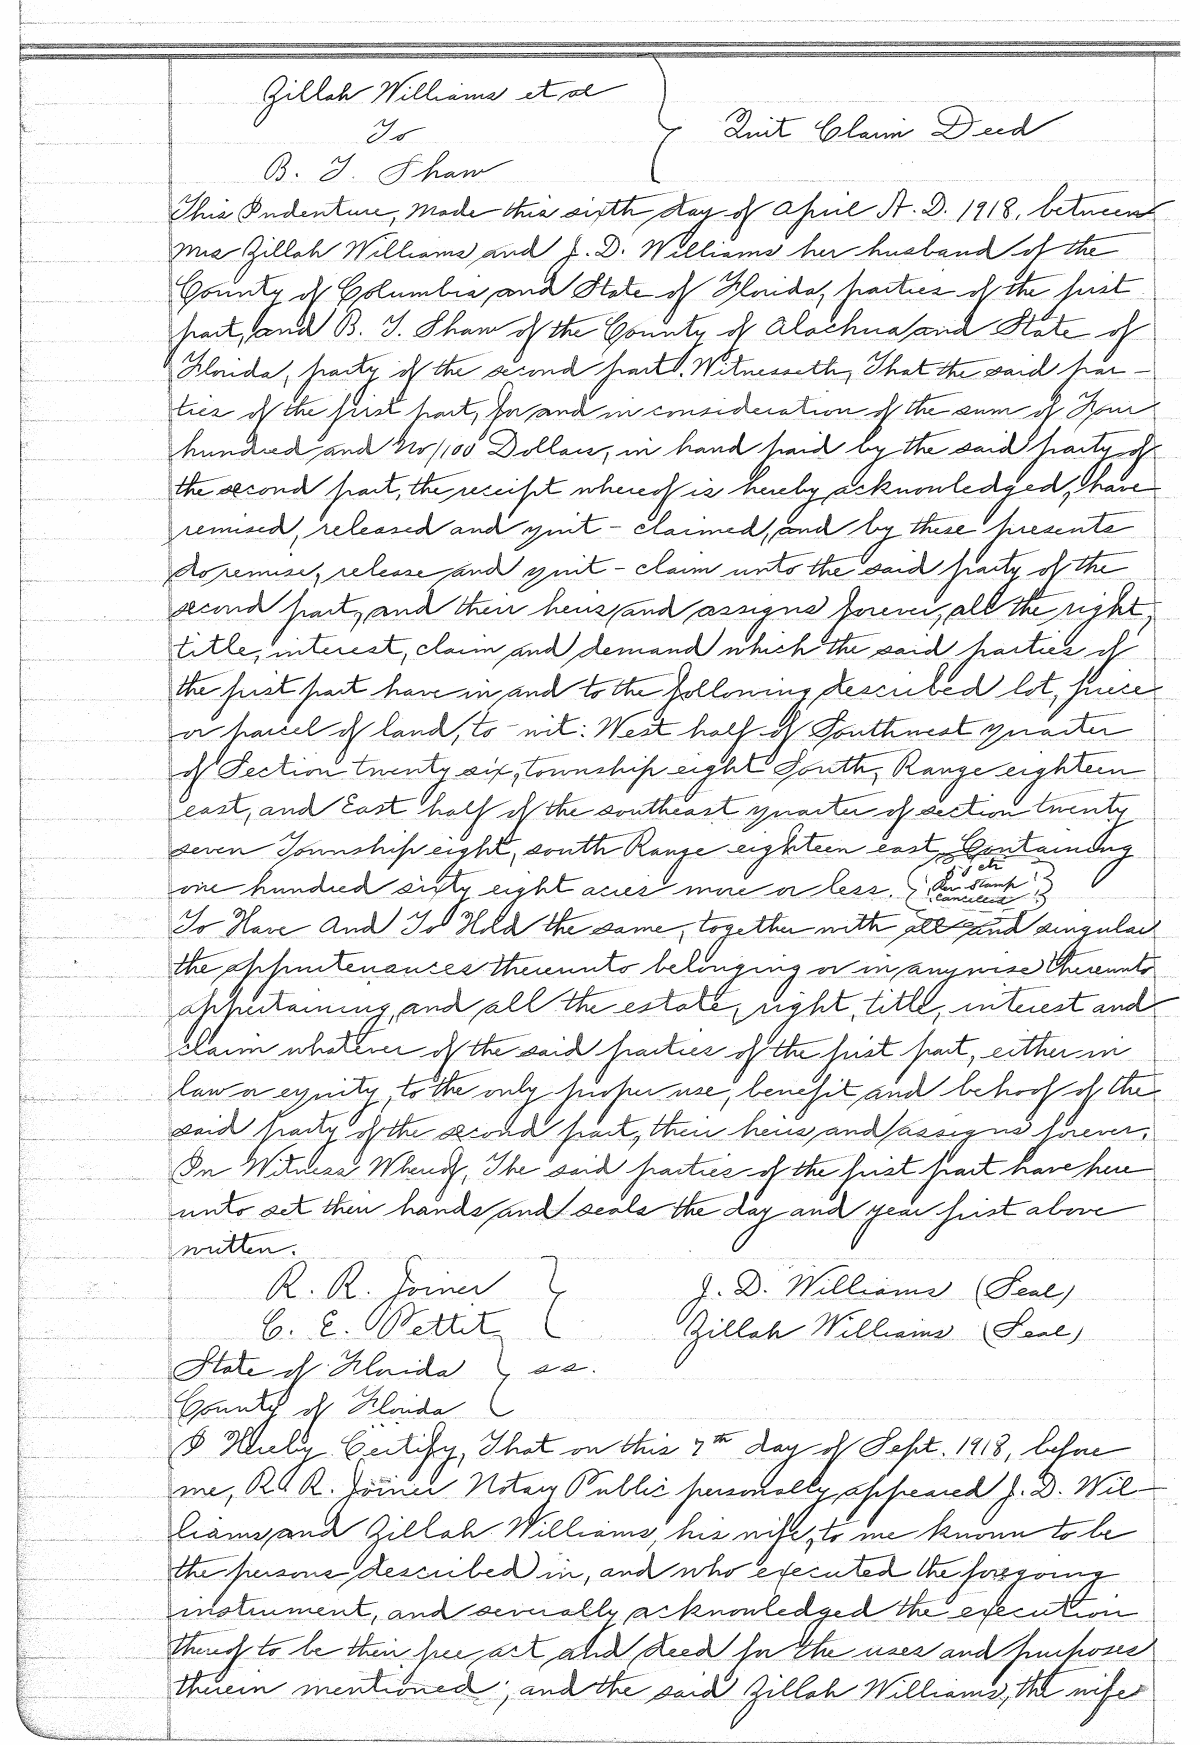 Zillah Williams et al
To
Quit Claim Deed
B. T. Shaw
This Indenture, Made this sixth day of April A. D. 1918, between
Mrs Zillah Williams and J. D. Williams her husband of the
County of Columbia and State of Florida, parties of the first
part, and B. T. Shaw of the County of Alachua and State of
Florida, party of the second part. Witnesseth, That the said par-
ties of the first part, for and in consideration of the sum of Four
hundred and No/100 Dollars, in hand paid by the said party of
the second part, the receipt whereof is hereby acknowledged, have
remised, released and quit-claimed, and by these presents
do remise, release and quit-claim unto the said party of the
second part, and their heirs and assigns forever, all the right,
title, interest, claim and demand which the said parties of
the first part have in and to the following described lot, piece
or parcel of land, to-wit: West half of Southwest quarter
of Section twenty six, township eight South, Range eighteen
east, and East half of the southeast quarter of section twenty
seven Township eight, south Range eighteen east Containing
one hundred sixty eight acres more or less.
Rev Stamp
cancelled
To Have And To Hold the same, together with all and singular
the appurtenances thereunto belonging or in anywise thereunto
appertaining, and all the estate, right, title, interest and
claim whatever of the said parties of the first part, either in
law or equity, to the only proper use, benefit and behoof of the
said party of the second part, their heirs and assigns forever.
In Witness Whereof, The said parties of the first part have here
unto set their hands and seals the day and year first above
written.
R. R. Joiner J. D. Williams (Seal)
C. E. Pettit Zillah Williams (Seal)
State of Florida } ss.
County of Florida
I Hereby Certify, That on this 7th day of Sept. 1918, before
me, R. R. Joiner Notary Public personally appeared J. D. Wil-
liams and Zillah Williams, his wife, to me known to be
the persons described in, and who executed the foregoing
instrument, and severally acknowledged the execution
thereof to be their free act and deed for the uses and purposes
therein mentioned; and the said Zillah Williams, the wife